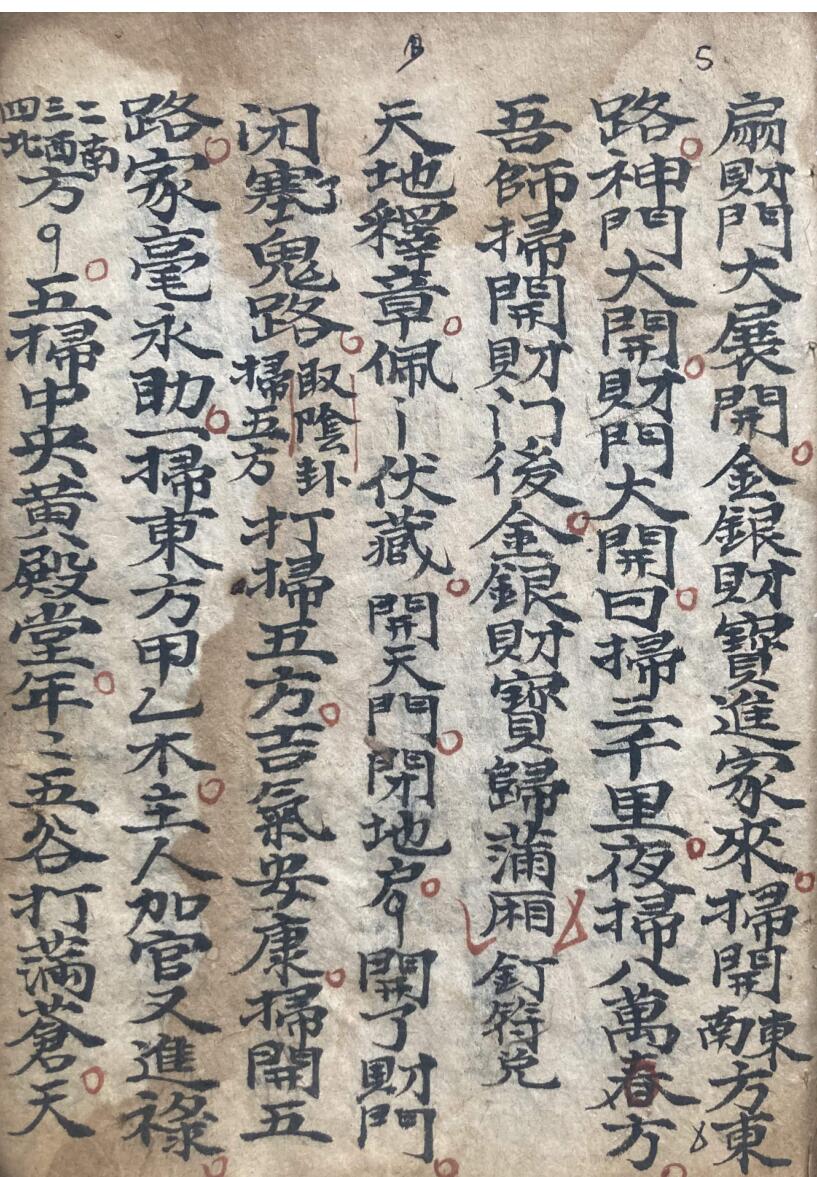 5
扇財門大展開金銀財寶進家來掃開東南方東
路神門大開財門大開日掃三千里夜掃八萬春方
吾師掃開財门後金銀財寶歸蒲廂釘符兑
天地釋章佩〻伏藏開天門閉地户開了財門
闭塞了鬼路取陰卦掃五方打掃五方吉氣安康掃開五
路家毫永助一掃東方甲乙木主人加官又進祿
二南三西四北方五掃中央黄殿堂年〻五谷打满蒼天